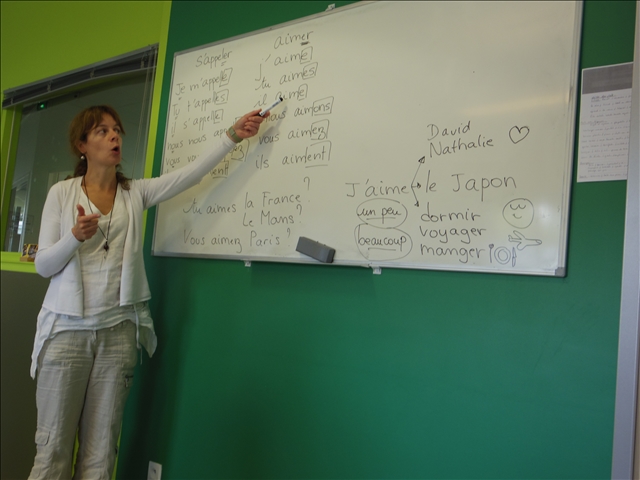 S'appeler
Je m'appelle
t'appelles
s'appelle
nous nous
vous
aimer
J'aime
tu aimes
il aime
nous aimons
vous aimez
ils aiment
tu aimes la France?
Le Mans?
Vous aimez Paris?
David
Nathalie
J'aime le Japon
un peu
beaucoup
dormir
voyager
manger